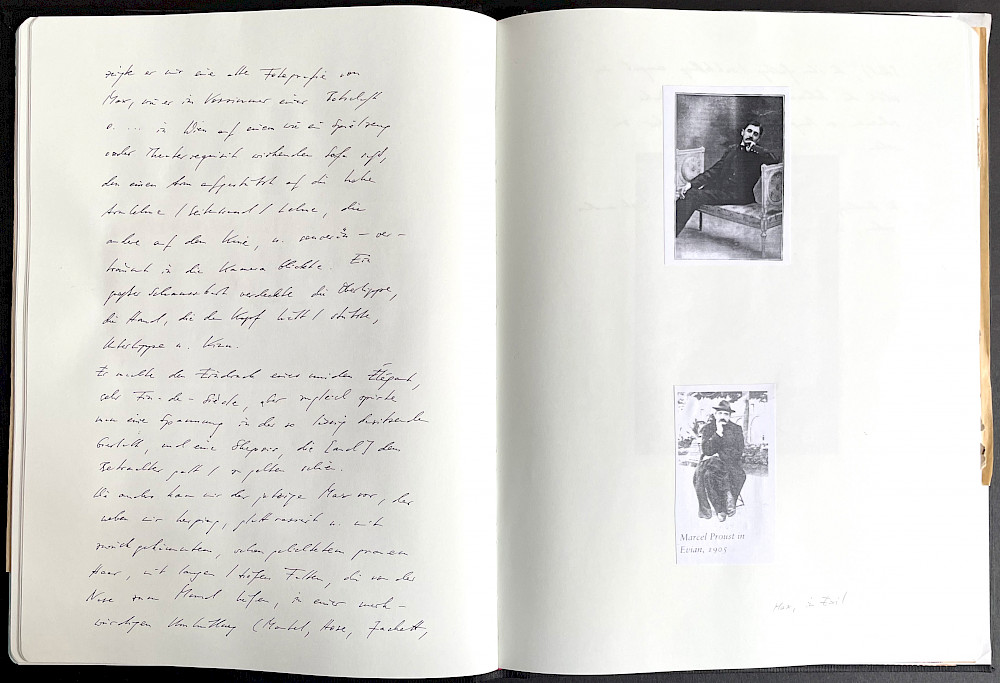 zeigte er mir eine alte Fotografie von
Max, wo er im Vorzimmer einer Botschaft
o. ... in Wien auf einem wie ein Spielzeug
oder Theaterrequisit wirkenden Sofa saß,
den einen Arm aufgestützt auf die hohe
Armlehne / Seitenwand / Lehne, die
andere auf dem Knie, u. souverän – ver-
träumt in die Kamera blickte. Ein
großer Schnauzbart verdeckte die Oberlippe,
die Hand, die den Kopf hielt / stützte,
Unterlippe u. Kinn.
Er machte den Eindruck eines müden Élégant,
sehr Fin-de-Siècle, aber zugleich spürte
man eine Spannung in der so lässig dasitzenden
Gestalt, und eine Skepsis, die [auch] dem
Betrachter galt / zu gelten schien.
Wie anders kam mir der jetzige Max vor, der
neben mir herging, glatt rasiert u. mit
zurückgekämmtem, schon gelichtetem grauem
Haar, mit langen / tiefen Falten, die von der
Nase zum Mund liefen, in einer merk-
würdigen Umhüllung (Mantel, Hose, Jackett,
Marcel Proust in
Evian, 1905
Max, im Exil